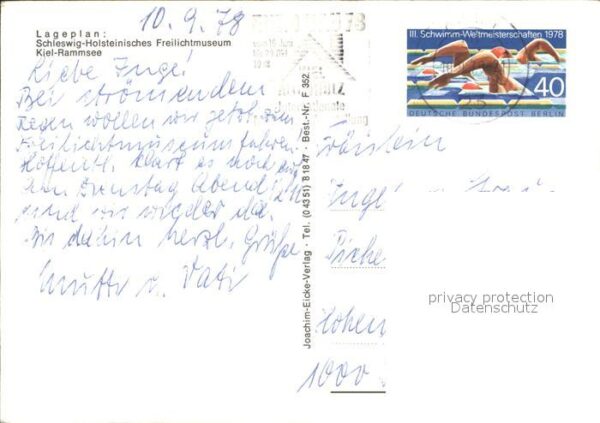 10.9.78
Lageplan:
Schleswig-Holsteinisches Freilichtmuseum
Kiel-Rammsee
Liebe Inge!
Bei strömendem
Regen wollen wir jetzt zum
Freilichtmuseum fahren.
Hoffentl. klart es noch auf
Am Dienstag Abend
sind wir wieder da.
Bis dahin herzl. Grüße
Mutti u. Vati
Joachim-Eicke-Verlag · Tel. (04351) 81847 · Best.-Nr. F 352
III. Schwimm-Weltmeisterschaften 1978
40
DEUTSCHE BUNDESPOST BERLIN
Fräulein
Inge
Hohen
1000
privacy protection
Datenschutz